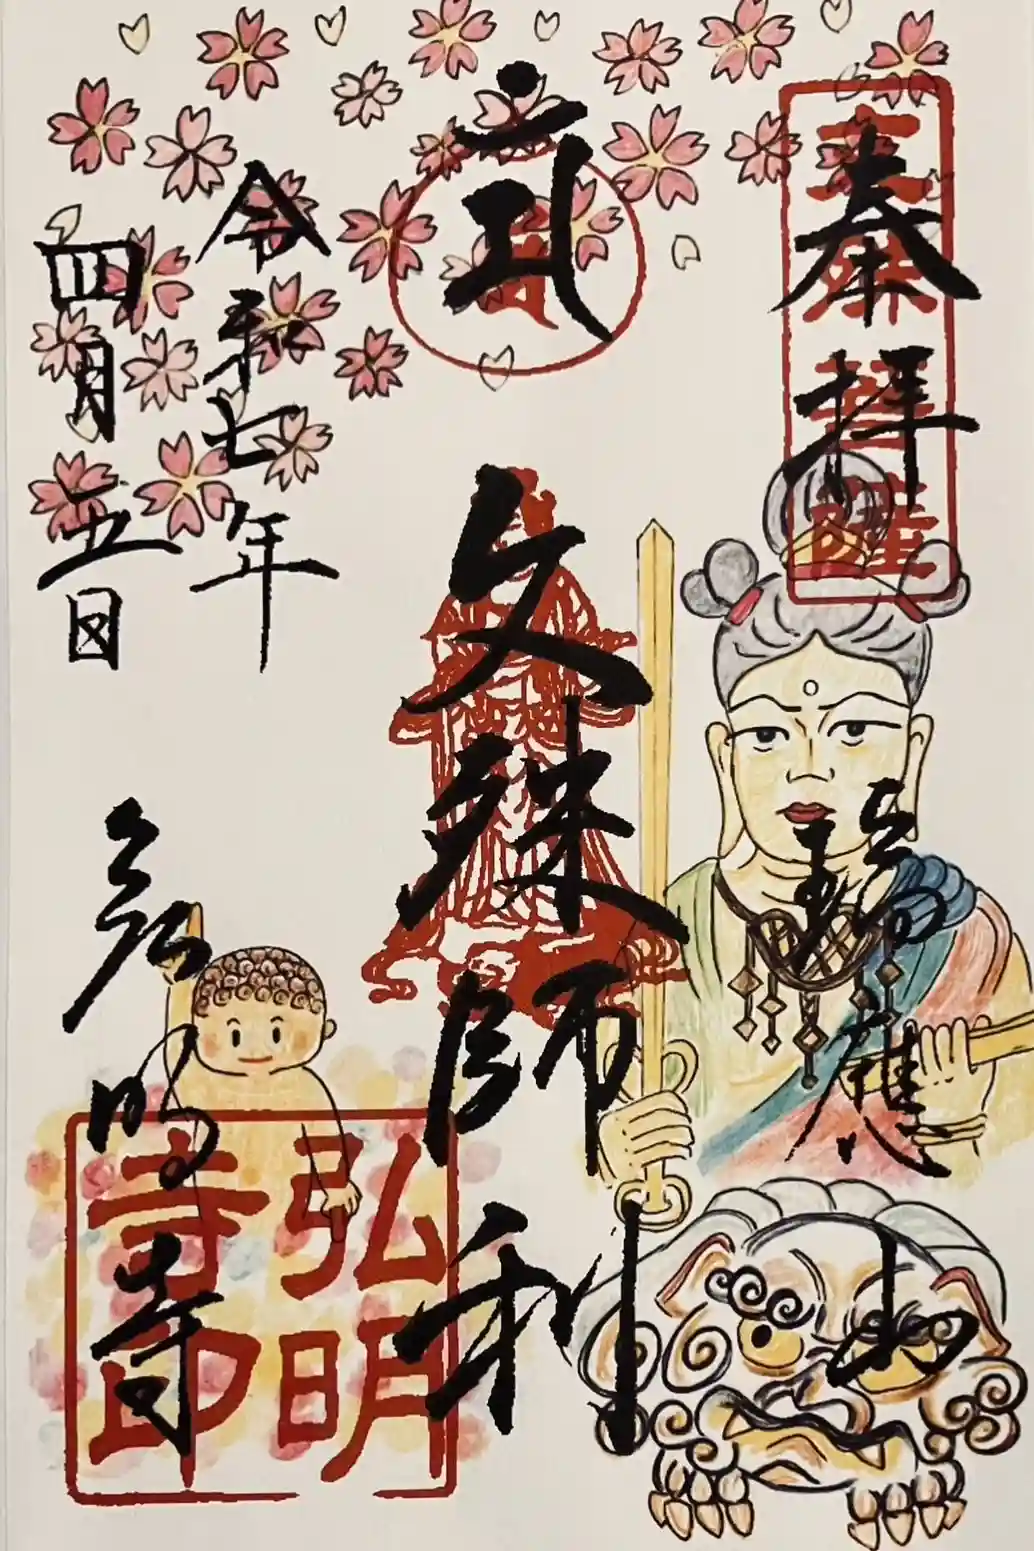 奉拝
瑞應山
文殊師利
令和七年
四月五日
弘明寺
弘明
寺印